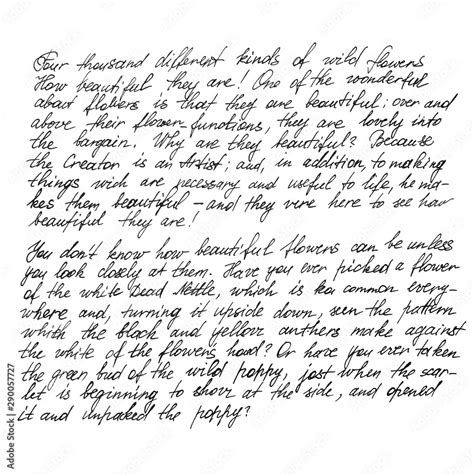 Four thousand different kinds of wild flowers
How beautiful they are! One of the wonderful
about flowers is that they are beautiful; over and
above their flower-functions, they are lovely into
the bargain. Why are they beautiful? Because
the Creator is an Artist; and, in addition, to making
things wich are necessary and useful to life, he ma-
kes them beautiful – and they vere here to see how
beautiful they are!
You don't know how beautiful flowers can be unless
you look closely at them. Have you ever picked a flower
of the white Dead Nettle, which is common every-
where and, turning it upside down, seen the pattern
whith the black and yellow anthers make against
the white of the flowers hood? Or have you ever taken
the green bud of the wild poppy, just when the scar-
let is beginning to show at the side, and opened
it and unpaked the poppy?
Adobe Stock | #290057727
Adobe Stock